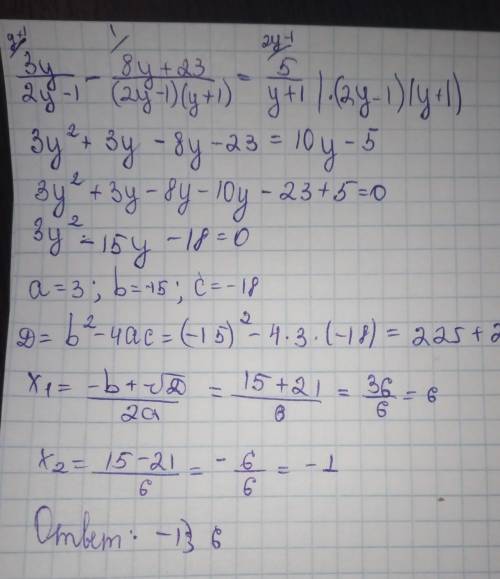 y+1 1 2y-1
3y/(2y-1) - (8y+23)/((2y-1)(y+1)) = 5/(y+1) | ·(2y-1)(y+1)
3y² + 3y - 8y - 23 = 10y - 5
3y² + 3y - 8y - 10y - 23 + 5 = 0
3y² - 15y - 18 = 0
a = 3 ; b = -15 ; c = -18
D = b² - 4ac = (-15)² - 4·3·(-18) = 225 + 2
x₁ = (-b + √D)/2a = (15 + 21)/6 = 36/6 = 6
x₂ = (15 - 21)/6 = -6/6 = -1
Ответ: -1; 6